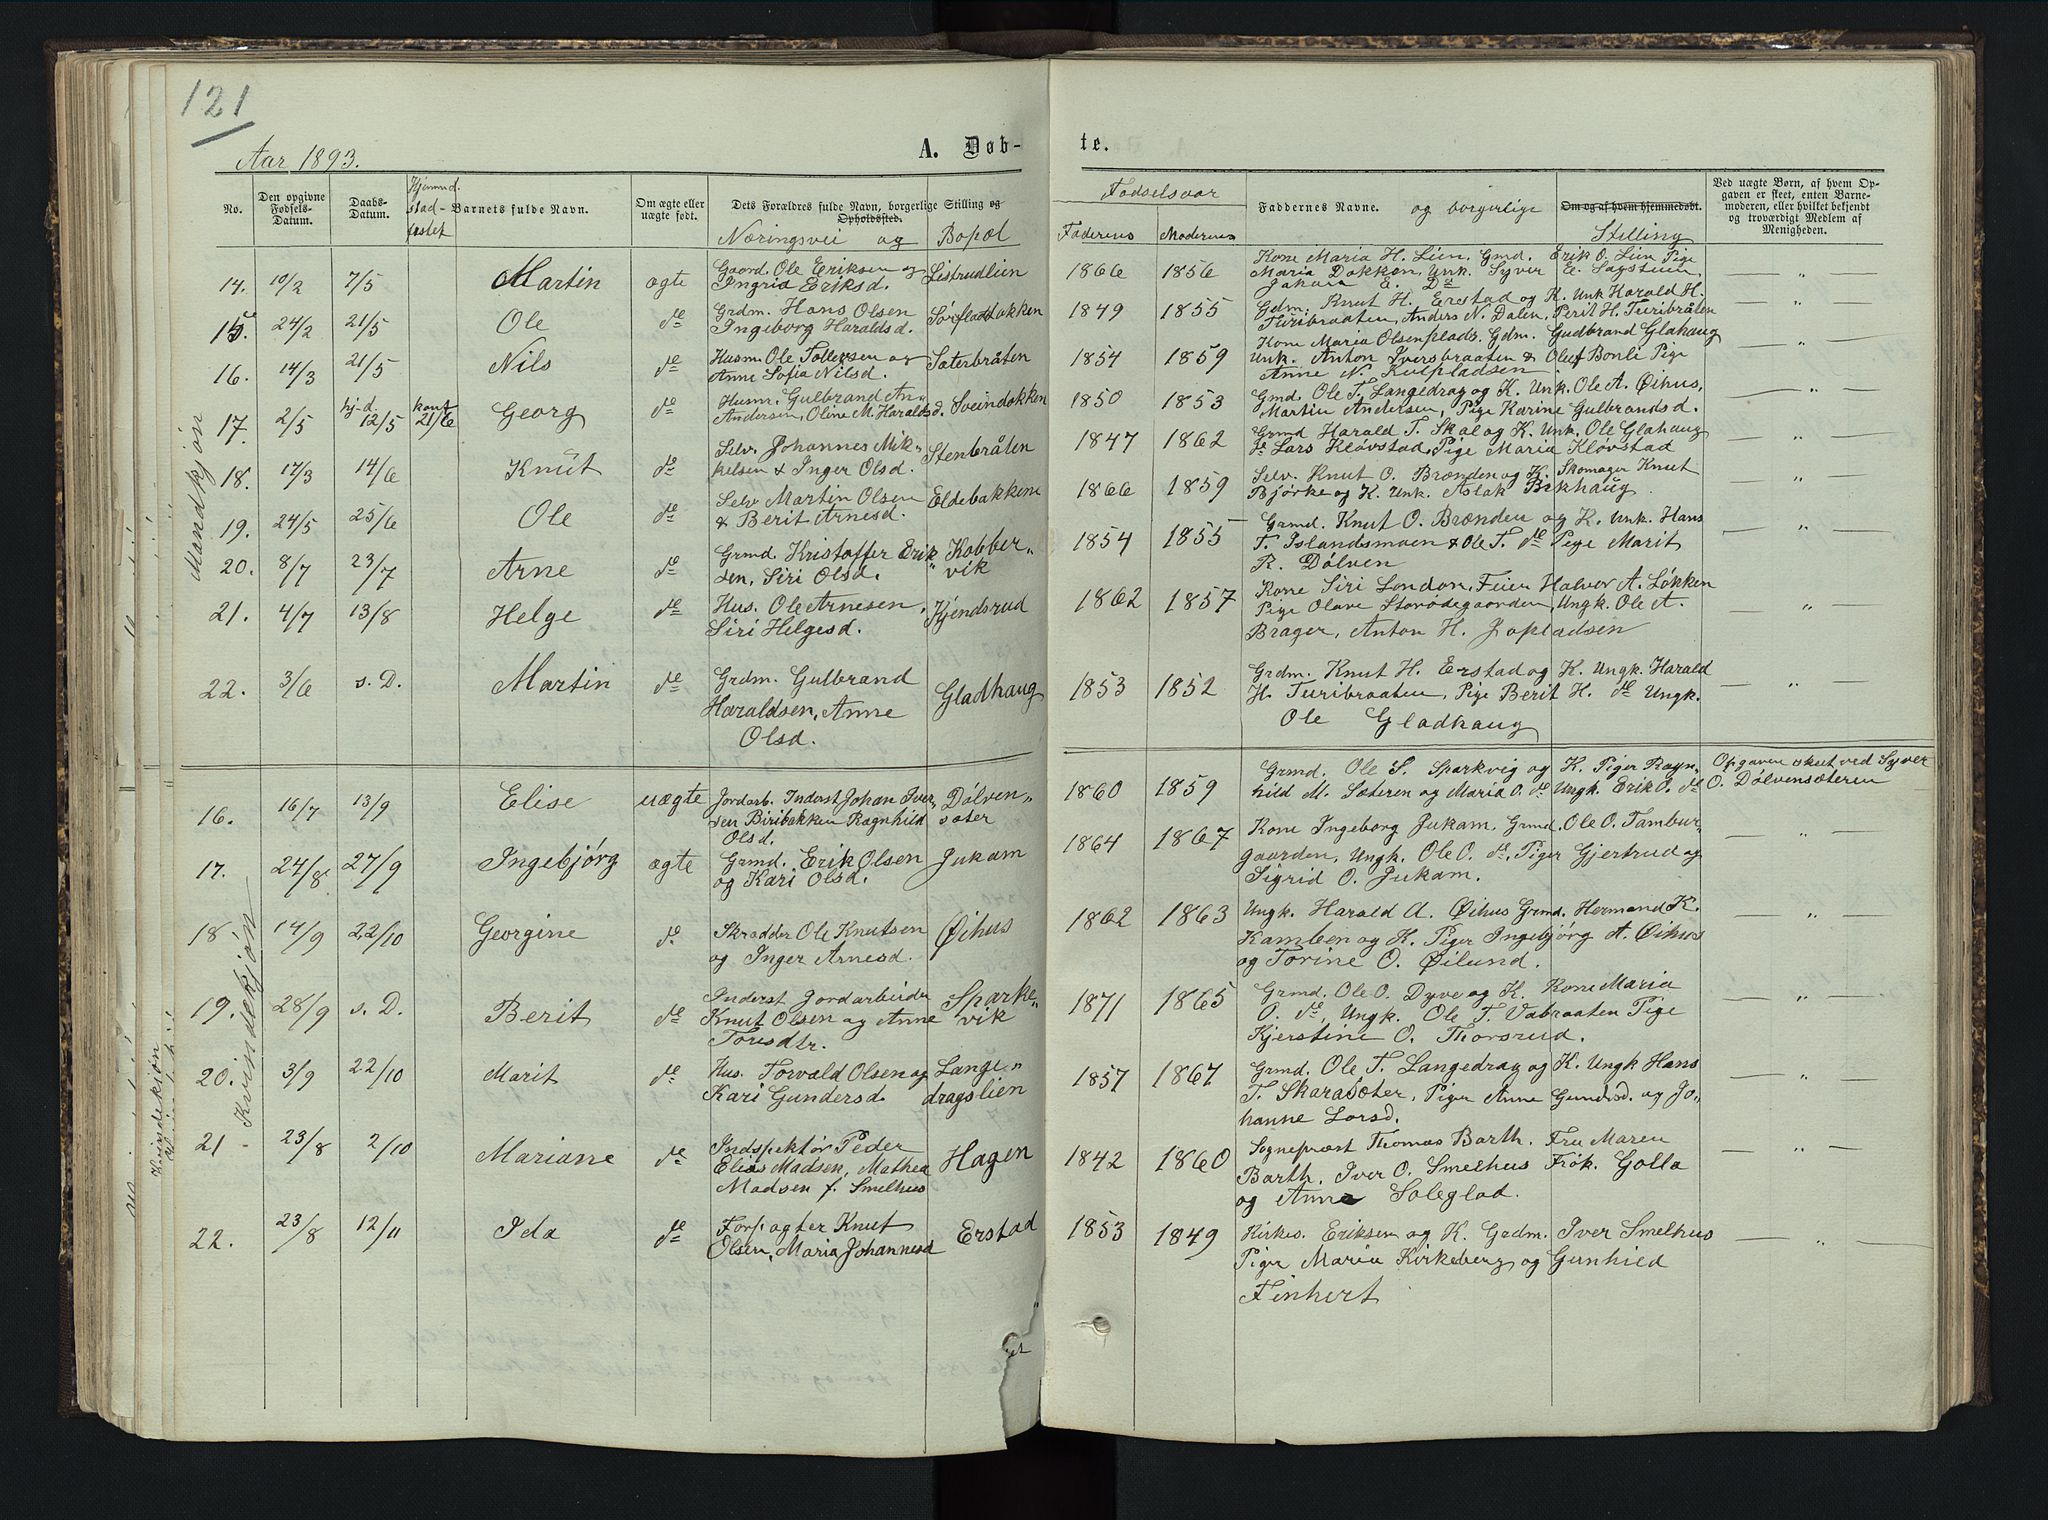 121
Aar 1893.
A. Døb-
te.
No.
Den opgivne Fødsels-Datum.
Daabs-Datum.
Hjemmed. stad-festet
Barnets fulde Navn.
Om ægte eller uægte født.
Dets Forældres fulde Navn, borgerlige Stilling og Opholdssted.
Næringsvei og Bopæl
Fødselsaar
Faderens Moderens
Faddernes Navne. og borgerlige Stilling
Om og af hvem hjemmedøbt.
Ved uægte Børn, af hvem Opgaven er skeet, enten Barnemoderen, eller hvilket bekjendt og troværdigt Medlem af Menigheden.
Mandkjøn
14. 10/2 7/5 Martin ægte Gaard. Ole Eriksen og Ingria Eriksd. Listrudlien 1866 1856 Kone Maria H. Lien, Gmd. Erik O. Lien Pige
Maria Dokken, Unk. Syver E. Sagstuen,
E. Do — „ —
15. 24/2 21/5 Ole do Grdm. Hans Olsen Ingeborg Haraldsd. 1849 1855 Gdm. Knut H. Erstad og K. Unk Harald H.
Turibraaten, Anders N. Dalen, Perit H. Turibråten — „ —
16. 14/3 21/5 Nils do Husm. Ole Tollefsen og Anne Sofia Nilsd. Sæterbråten 1854 1859 Kone Maria Olsenplads. Gdm. Gudbrand Glahaug
Unk. Anton Iversbraaten & Oluf Bonli Pige
Anne N. — „ —
17. 2/5 hj-d. 12/5 konf 21/6 Georg do Husm. Gulbrand An-
Andersen, Oline M. Haraldsd. Sveindokken 1850 1853 Gmd. Ole T. Langedrag og K. Unk. Ole A. Øihus,
Martin Andersen, Pige Karine Gulbrandsd. — „ —
18. 17/3 14/6 Knut do Selv. Johannes Mik-
kelsen & Inger Olsd. Stenbråten 1847 1862 Grmd Harald T. Skal og K. Unk. Ole Glahaug
do Lars Kløvstad, Pige Maria Kløvstad — „ —
19. 24/5 25/6 Ole do Selv Martin Olsen & Berit Arnesd. Eldebakkene 1866 1859 Selv. Knut O. Brænden og K. Skomager Knut
Bjørke og K. Unk. Aslak Birkhaug — „ —
20. 8/7 23/7 Arne do Grmd. Kristoffer Erik„
sen, Siri Olsd. Kobber„
vik 1854 1855 Grmd. Knut O. Brænden og K. Unk. Hans
T. Islandsmoen & Ole T. do Pige Marit
R. Dølven — „ —
21. 4/7 13/8 Helge do Hus. Ole Arnesen, Siri Helgesd. Kjendsrud 1862 1857 Kone Siri London, Feier Halvor A. Løkken
Pige Olave Storødegaarden, Ungk. Ole A.
Brager, Anton H. Jopladsen — „ —
22. 3/6 s. D. Martin do Grdm. Gulbrand
Haraldsen, Anne
Olsd. Gladhaug 1853 1852 Grdm. Knut H. Erstad og K. Ungk. Harald
H. Turibraaten, Pige Berit H. do Ungk.
Ole Gladhaug — „ —
Kvindekjøn
16. 16/7 13/9 Elise uægte Jordarb. Inderst Johan Iver„
sen Biribakken Ragnhild
Olsd. Dølven„
sæter 1860 1859 Grmd. Ole S. Sparkvig og K. Piger Ragn„
hild M. Sæteren og Maria O. do Ungk. Erik O. do Opgaven skeet ved Syver
O. Dølvensæteren
17. 24/8 27/9 Ingebjørg ægte Grmd. Erik Olsen
og Kari Olsd. Jukam 1864 1867 Kone Ingeborg Jukam, Grmd. Ole O. Tambur-
gaarden, Ungk. Ole O. do, Piger Gjertrud og
Sigrid O. Jukam. — „ —
18 14/9 22/10 Georgine do Skrædder Ole Knutsen
og Inger Arnesd. Øihus 1862 1863 Ungk. Harald A. Øihus Grmd. Hermand K.
Kambén og K. Piger Ingebjørg A. Øihus
og Torine O. Øilund. — „ —
19. 28/9 s. D. Berit do Inderst Jordarbeider
Knut Olsen og Anne
Toresdtr. Sparke„
vik 1871 1865 Grmd. Ole O. Dyve og K. Kone Maria
O. do, Ungk. Ole T. Vabraaten Pige
Kjerstine O. Thorsrud. — „ —
20. 3/9 22/10 Marit do Hus. Torvald Olsen og
Kari Gundersd. Lange„
dragslien 1857 1867 Grmd. Ole T. Langedrag og K. Ungk Hans
T. Skarasæter, Piger Anne Gundersd. og Jo„
hanne Larsd. — „ —
21 - 23/8 2/10 Mariane do Indspektør Peder
Elias Madsen, Mathea
Madsen f. Smelhus Hagen 1842 1860 Sogneprest Thomas Barth. Fru Maren
Barth, Iver O. Smelhus Frøk. Golla
og Anne Soleglad. — „ —
22. 23/8 12/11 Ida do Forpagter Knut
Olsen, Maria Johannesd Erstad 1853 1849 Kirkes. Eriksen og K. Grdm. Iver Smelhus
Piger Maria Kirkeberg og Gunhild
Finhert — „ —